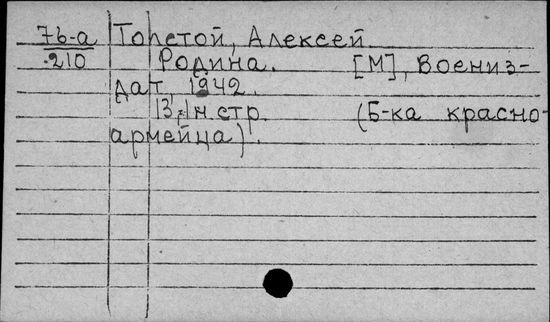 7б-а Толстой, Алексей
210 Родина. [М], Воениз-
дат, 1942.
13,1 н. стр. (Б-ка красно-
армейца).